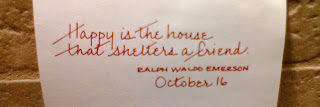 Happy is the house
that shelters a friend.
RALPH WALDO EMERSON
October 16